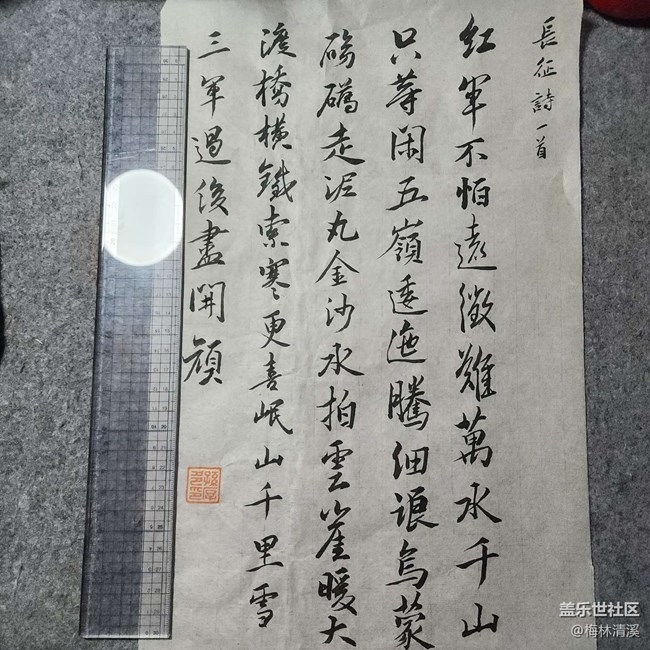 長征詩一首
紅軍不怕遠徵難萬水千山
只等閑五嶺逶迤騰細浪烏蒙
磅礴走泥丸金沙水拍雲崖暖大
渡橋橫鐵索寒更喜岷山千里雪
三軍過後盡開顏
盖乐世社区
@梅林清溪